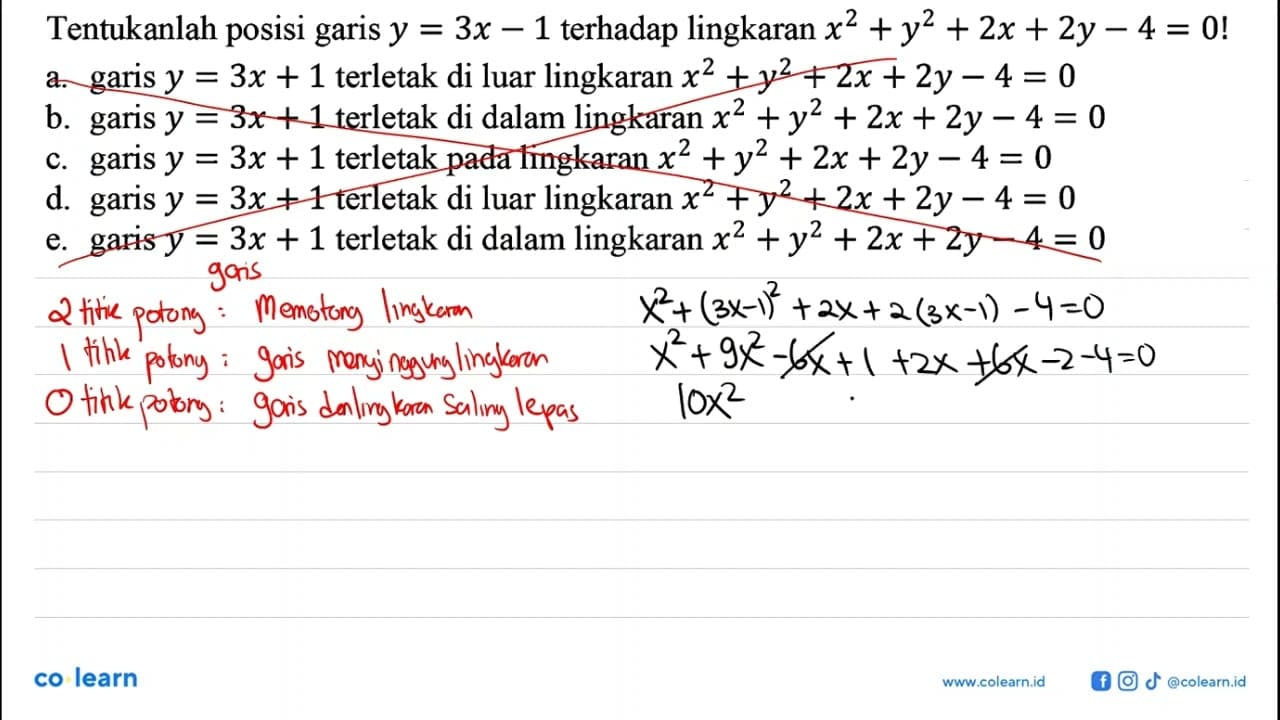 Tentukanlah posisi garis y = 3x − 1 terhadap lingkaran x² + y² + 2x + 2y − 4 = 0!
a. garis y = 3x + 1 terletak di luar lingkaran x² + y² + 2x + 2y − 4 = 0
b. garis y = 3x + 1 terletak di dalam lingkaran x² + y² + 2x + 2y − 4 = 0
c. garis y = 3x + 1 terletak pada lingkaran x² + y² + 2x + 2y − 4 = 0
d. garis y = 3x + 1 terletak di luar lingkaran x² + y² + 2x + 2y − 4 = 0
e. garis y = 3x + 1 terletak di dalam lingkaran x² + y² + 2x + 2y − 4 = 0
garis
2 titik potong : Memotong lingkaran
1 titik potong : garis menyinggung lingkaran
0 titik potong : garis dan lingkaran saling lepas
x² + (3x−1)² + 2x + 2(3x−1) − 4 = 0
x² + 9x² − 6x + 1 + 2x + 6x − 2 − 4 = 0
10x²
co learn
www.colearn.id
@colearn.id